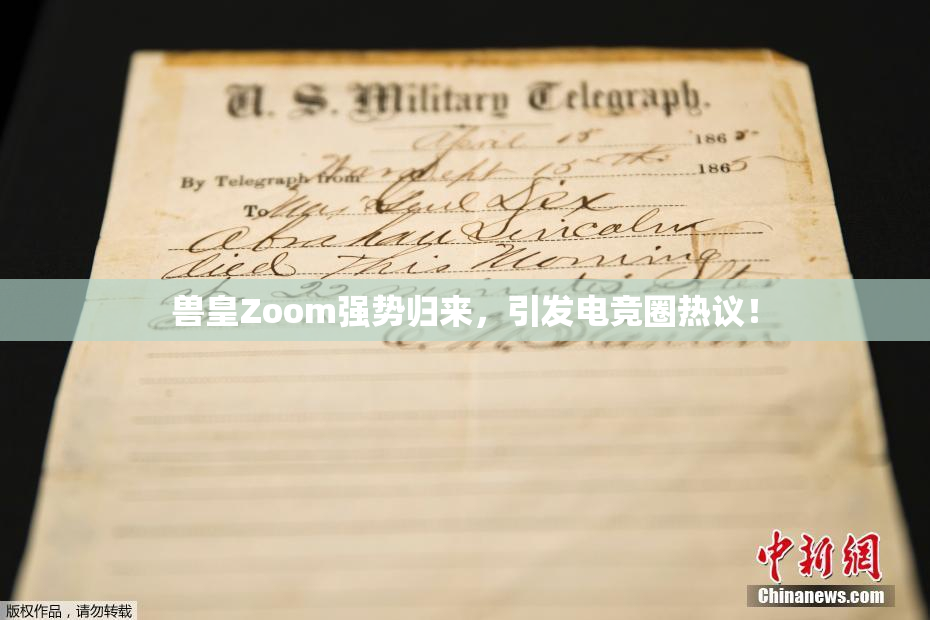 U. S. Military Telegraph.
April 15 1865
By Telegraph from War Dept 15th 1865
To Maj Genl Dix
Abraham Lincoln
died This Morning
at 22 minutes after
兽皇Zoom强势归来，引发电竞圈热议！
E. M. Stanton
中新网
Chinanews.com
版权作品，请勿转载